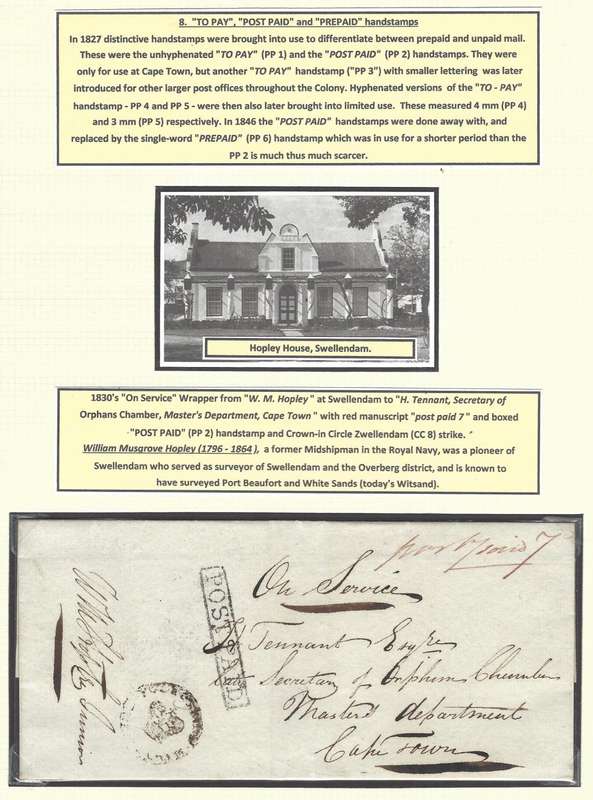 8. "TO PAY", "POST PAID" and "PREPAID" handstamps
In 1827 distinctive handstamps were brought into use to differentiate between prepaid and unpaid mail.
These were the unhyphenated "TO PAY" (PP 1) and the "POST PAID" (PP 2) handstamps. They were
only for use at Cape Town, but another "TO PAY" handstamp ("PP 3") with smaller lettering was later
introduced for other larger post offices throughout the Colony. Hyphenated versions of the "TO - PAY"
handstamp - PP 4 and PP 5 - were then also later brought into limited use. These measured 4 mm (PP 4)
and 3 mm (PP 5) respectively. In 1846 the "POST PAID" handstamps were done away with, and
replaced by the single-word "PREPAID" (PP 6) handstamp which was in use for a shorter period than the
PP 2 is much thus much scarcer.
Hopley House, Swellendam.
1830's "On Service" Wrapper from "W. M. Hopley" at Swellendam to "H. Tennant, Secretary of
Orphans Chamber, Master's Department, Cape Town" with red manuscript "post paid 7" and boxed
"POST PAID" (PP 2) handstamp and Crown-in Circle Zwellendam (CC 8) strike.
William Musgrove Hopley (1796 - 1864), a former Midshipman in the Royal Navy, was a pioneer of
Swellendam who served as surveyor of Swellendam and the Overberg district, and is known to
have surveyed Port Beaufort and White Sands (today's Witsand).
post paid 7
On Service
POST PAID
H Tennant Esqre
Secretary of Orphan Chamber
Masters department
Cape Town
W M Hopley